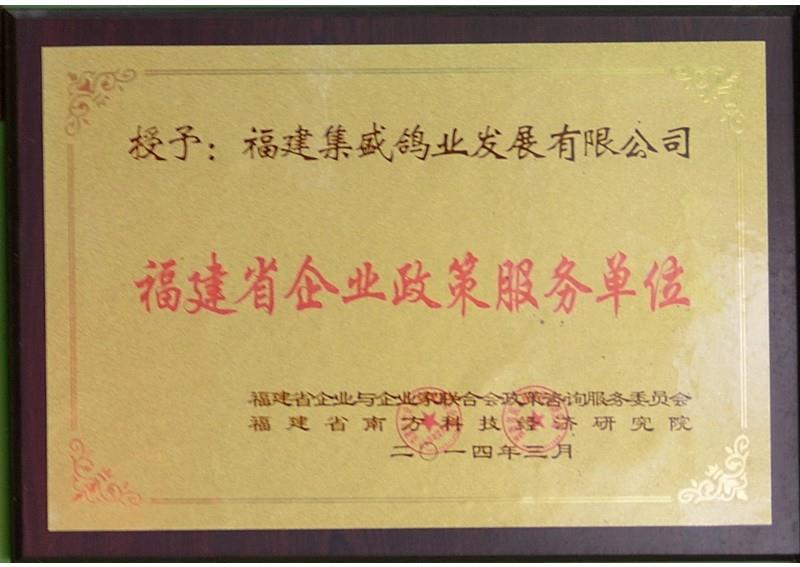 授予：福建集盛鸽业发展有限公司
福建省企业政策服务单位
福建省企业与企业家联合会政策咨询服务委员会
福建省南方科技经济研究院
二〇一四年三月